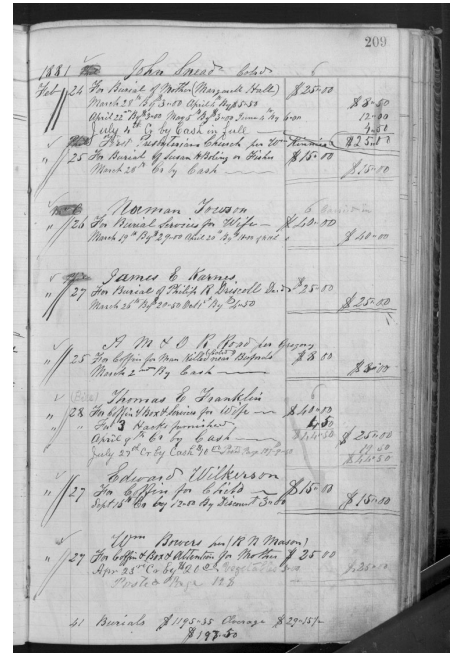 209
1881 John Snead Cold
Feb 24 For Burial of Mother (Margarett Hall) $25-00
March 28th By 3-00 April By $5-50 $8-50
April 22nd By 3-00 May 5th By 3-00 June 4th By 6-00 12-00
July 4th Cr by Cash in full 4-50
First Presbyterian Church per Wm Kinnier $25-00
" 25 For Burial of Susan Boling or Fisher $15-00
March 28th Cr by Cash $15-00
Naman Towson
" 26 For Burial Services for Wife $40-00
March 19th By 29-00 April 20th By $40-00
James E Karnes
" 27 For Burial of Philip R Driscoll $25-00
March 26th By 20-50 Oct By 4-50 $25-00
A M & O R Road per Gregory
" 25 For Coffin for Man Killed near Bufords $8-00
March 2nd By Cash $8-00
Thomas E Franklin
" 28 For Coffin & Box & Services for Wife $40-00
" " For 3 Hacks furnished 4-50
April 9th Cr by Cash $44-50 $25-00
July 27th Cr By Cash 19-50
$44-50
Edward Wilkerson
" 27 For Coffin for Child $15-00
Sept 15th Cr by 12-00 By Discount 3-00 $15-00
Wm Bowers per (R N Mason)
" 27 For Coffin & Box & Attention for Mother $25-00
Apr 23rd Cr By
Posted Page 128
41 Burials $1195-35 Average $29-15
$197-50